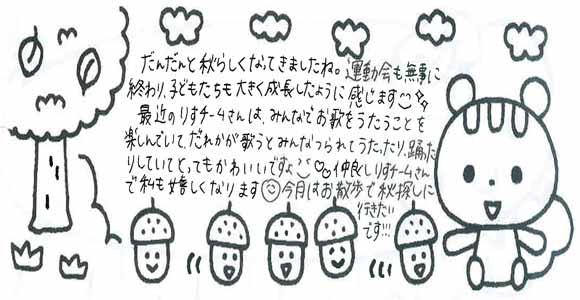 だんだんと秋らしくなってきましたね。運動会も無事に
終わり、子どもたちも大きく成長したように感じます
最近のりすチームさんは、みんなでお歌をうたうことを
楽しんでいて、だれかが歌うとみんなつられてうたったり、踊った
りしていてとってもかわいいですよ 仲良しりすチームさん
で私も嬉しくなります 今月はお散歩で秋探しに
行きたい
です!!!